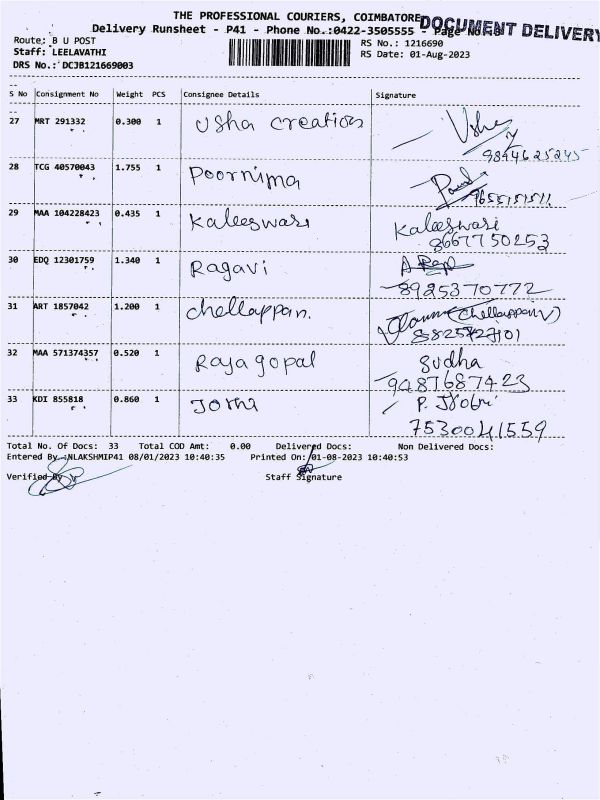 THE PROFESSIONAL COURIERS, COIMBATORE
DOCUMENT DELIVERY
Delivery Runsheet - P41 - Phone No.:0422-3505555 - Page No.:3
Route: B U POST
RS No.: 1216690
Staff: LEELAVATHI
RS Date: 01-Aug-2023
DRS No.: DCJB121669003
S No Consignment No Weight PCS Consignee Details Signature
27 MRT 291332 0.300 1 Usha creations
9844625245
28 TCG 40570043 1.755 1 Poornima
9655151511
29 MAA 104228423 0.435 1 Kaleeswari Kaleeswari
8667750253
30 EDQ 12301759 1.340 1 Ragavi
8925370772
31 ART 1857042 1.200 1 chellappan. (Chellappan V)
8825727101
32 MAA 571374357 0.520 1 Rajagopal Sudha
9487687423
33 KDI 855818 0.860 1 Jothi P. Jothi
7530041559
Total No. Of Docs: 33 Total COD Amt: 0.00 Delivered Docs: Non Delivered Docs:
Entered By :NLAKSHMIP41 08/01/2023 10:40:35 Printed On: 01-08-2023 10:40:53
Verified By Staff Signature